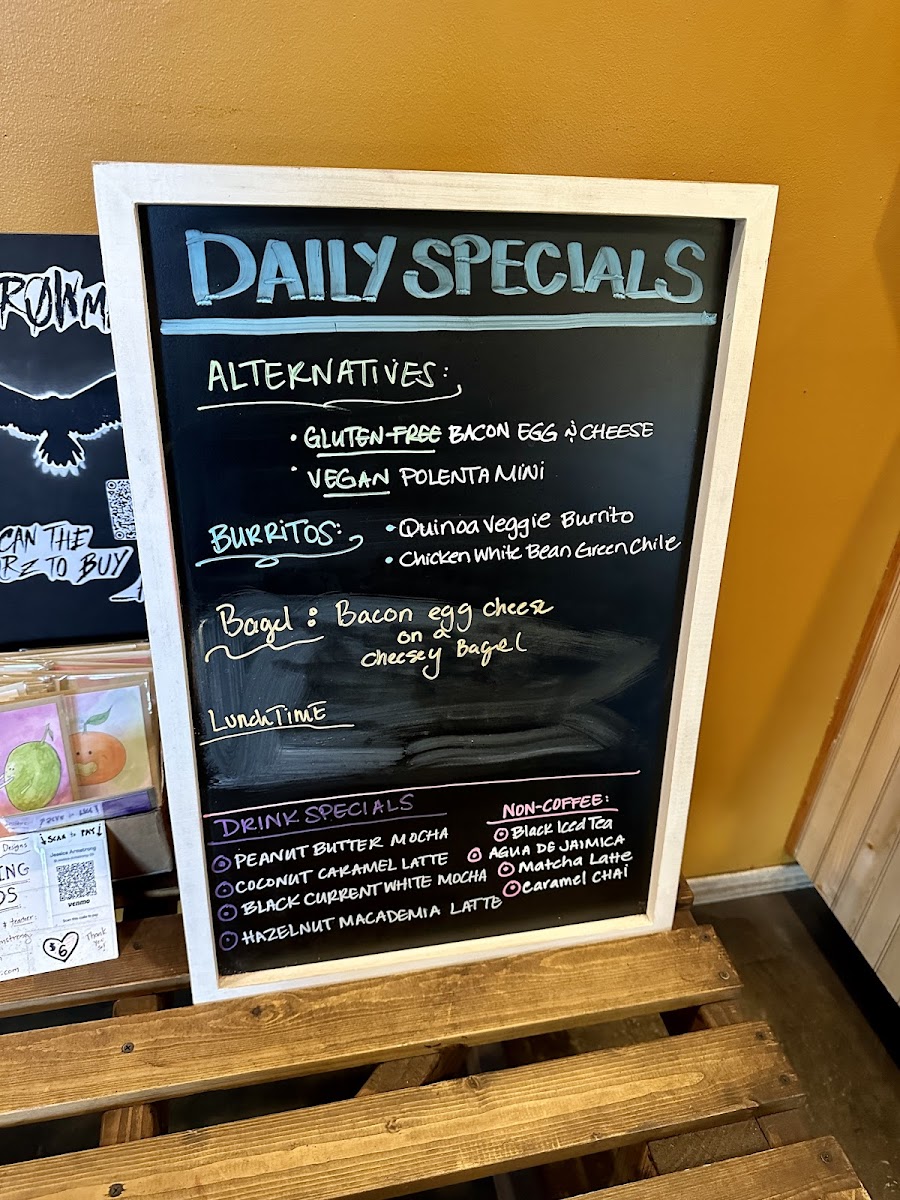 DAILY SPECIALS
ALTERNATIVES:
• GLUTEN-FREE BACON EGG & CHEESE
• VEGAN POLENTA MINI
BURRITOS:
• Quinoa Veggie Burrito
• Chicken White Bean Green Chile
Bagel: Bacon egg cheese
on a
cheesey Bagel
LunchTime
DRINK SPECIALS
PEANUT BUTTER MOCHA
COCONUT CARAMEL LATTE
BLACK CURRENT WHITE MOCHA
HAZELNUT MACADEMIA LATTE
NON-COFFEE:
Black Iced Tea
AGUA DE JAIMICA
Matcha Latte
Caramel CHAI
CAN THE
TO BUY
Designs
SCAN to PAY
Jessica Armstrong
venmo
$6
Thank
You